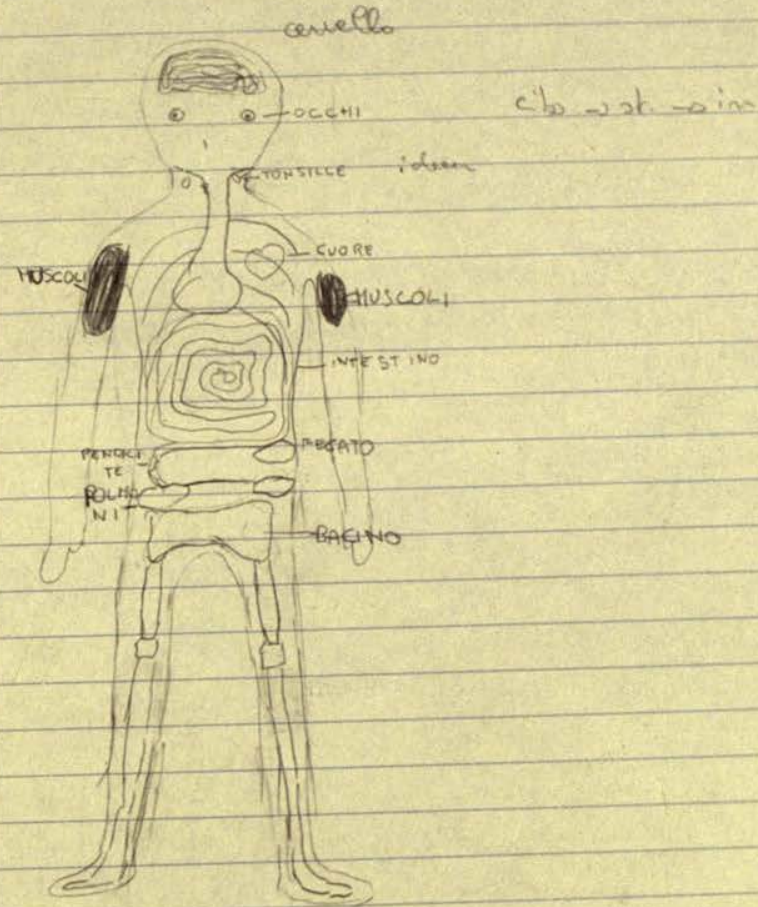 cervello
OCCHI
cibo → st. → in
TONSILLE idem
CUORE
MUSCOLI
MUSCOLI
INTESTINO
FEGATO
PENDICI
TE
POLMO
NI
BACINO